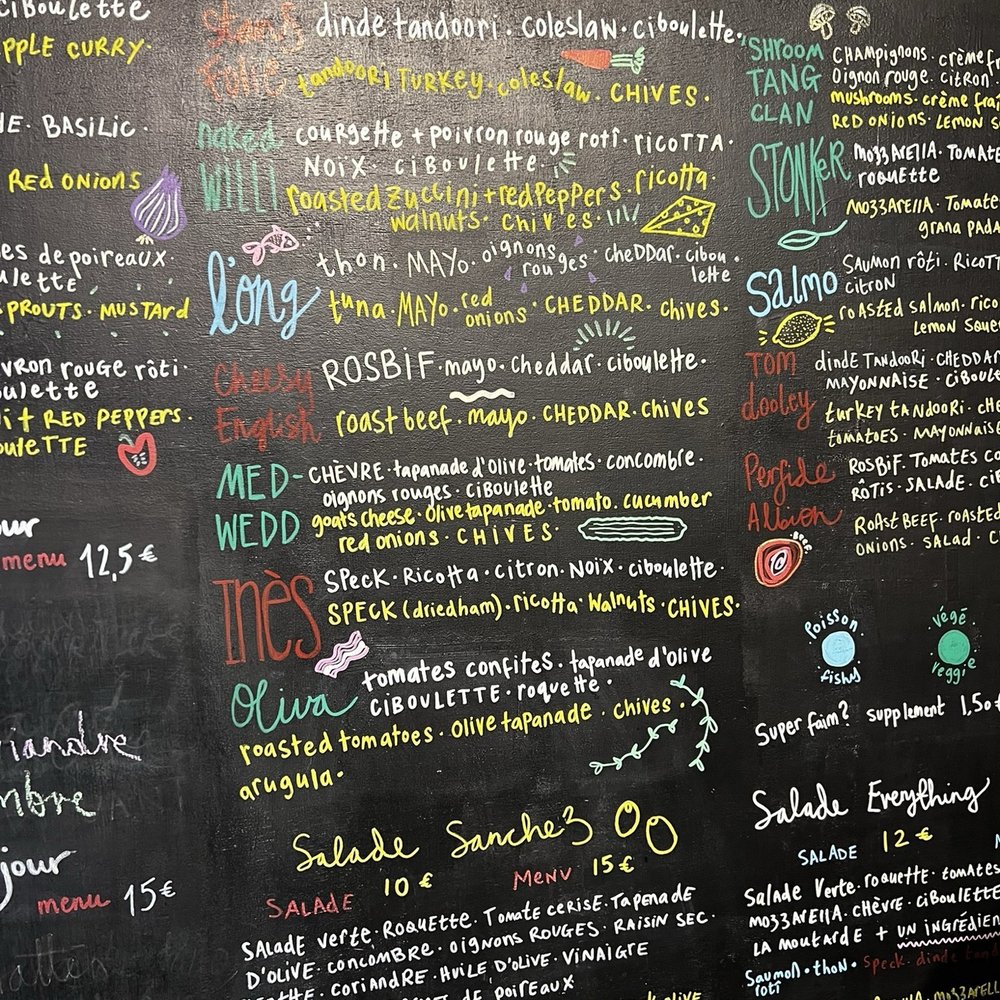 ciboulette
PPLE CURRY.
BASILIC.
RED ONIONS
de poireaux.
MUSTARD
rouge rôti.
RED PEPPERS.
menu 12,5€
jour
menu 15€
dinde tandoori. coleslaw. ciboulette.
Folie tandoori TURKEY. coleslaw. CHIVES.
naked courgette + poivron rouge roti. ricotta.
NOIX. ciboulette.
WILLI roasted zuccini + red peppers. ricotta.
walnuts. chives.
l'ong thon. MAYO. oignons rouges. cheddar. cibou
lette
tuna. MAYO. red onions. CHEDDAR. chives.
Cheesy ROSBIF. mayo. cheddar. ciboulette.
English roast beef. mayo. CHEDDAR. chives
MED- CHÈVRE. tapanade d'olive. tomates. concombre.
oignons rouges. ciboulette
WEDD goats cheese. olive tapanade. tomato. cucumber
red onions. CHIVES.
INès SPECK. Ricotta. citron. NOIX. ciboulette.
SPECK (dried ham). ricotta. walnuts. CHIVES.
Oliva tomates confites. tapanade d'olive
CIBOULETTE. roquette.
roasted tomatoes. olive tapanade. chives.
arugula.
Salade Sanchez
SALADE 10€ MENU 15€
SALADE Verte. ROQUETTE. Tomate CERISE. Tapenade
D'OLIVE. CONCOMBRE. OIGNONS ROUGES. RAISIN SEC.
CORIANDRE. HUILE D'OLIVE. VINAIGRE
DE POIREAUX
'SHROOM CHAMPIGNONS.
TANG Oignon rouge. citron.
CLAN mushrooms. crème
RED ONIONS. LEMON
STONKER MOZZARELLA.
roquette
MOZZARELLA. Tomate
grana
SALMO SAUMON rôti.
citron
roasted salmon.
LEMON
TOM dinde TANDOORI. CHEDDAR
MAYONNAISE.
dooley turkey tandoori.
tomatoes. MAYONNAISE
Perfide ROSBIF. TOMATES
RÔTIS. SALADE.
Albion ROAST BEEF. roasted
ONIONS. SALAD.
Poisson. fishy
végé. veggie
Super faim? supplement 1,50
Salade Everything
SALADE 12€
Salade Verte. roquette. tomates
MOZZARELLA. CHÈVRE. CIBOULETTE
LA MOUTARDE + UN
SAUMON. THON. Speck. dinde
rôti